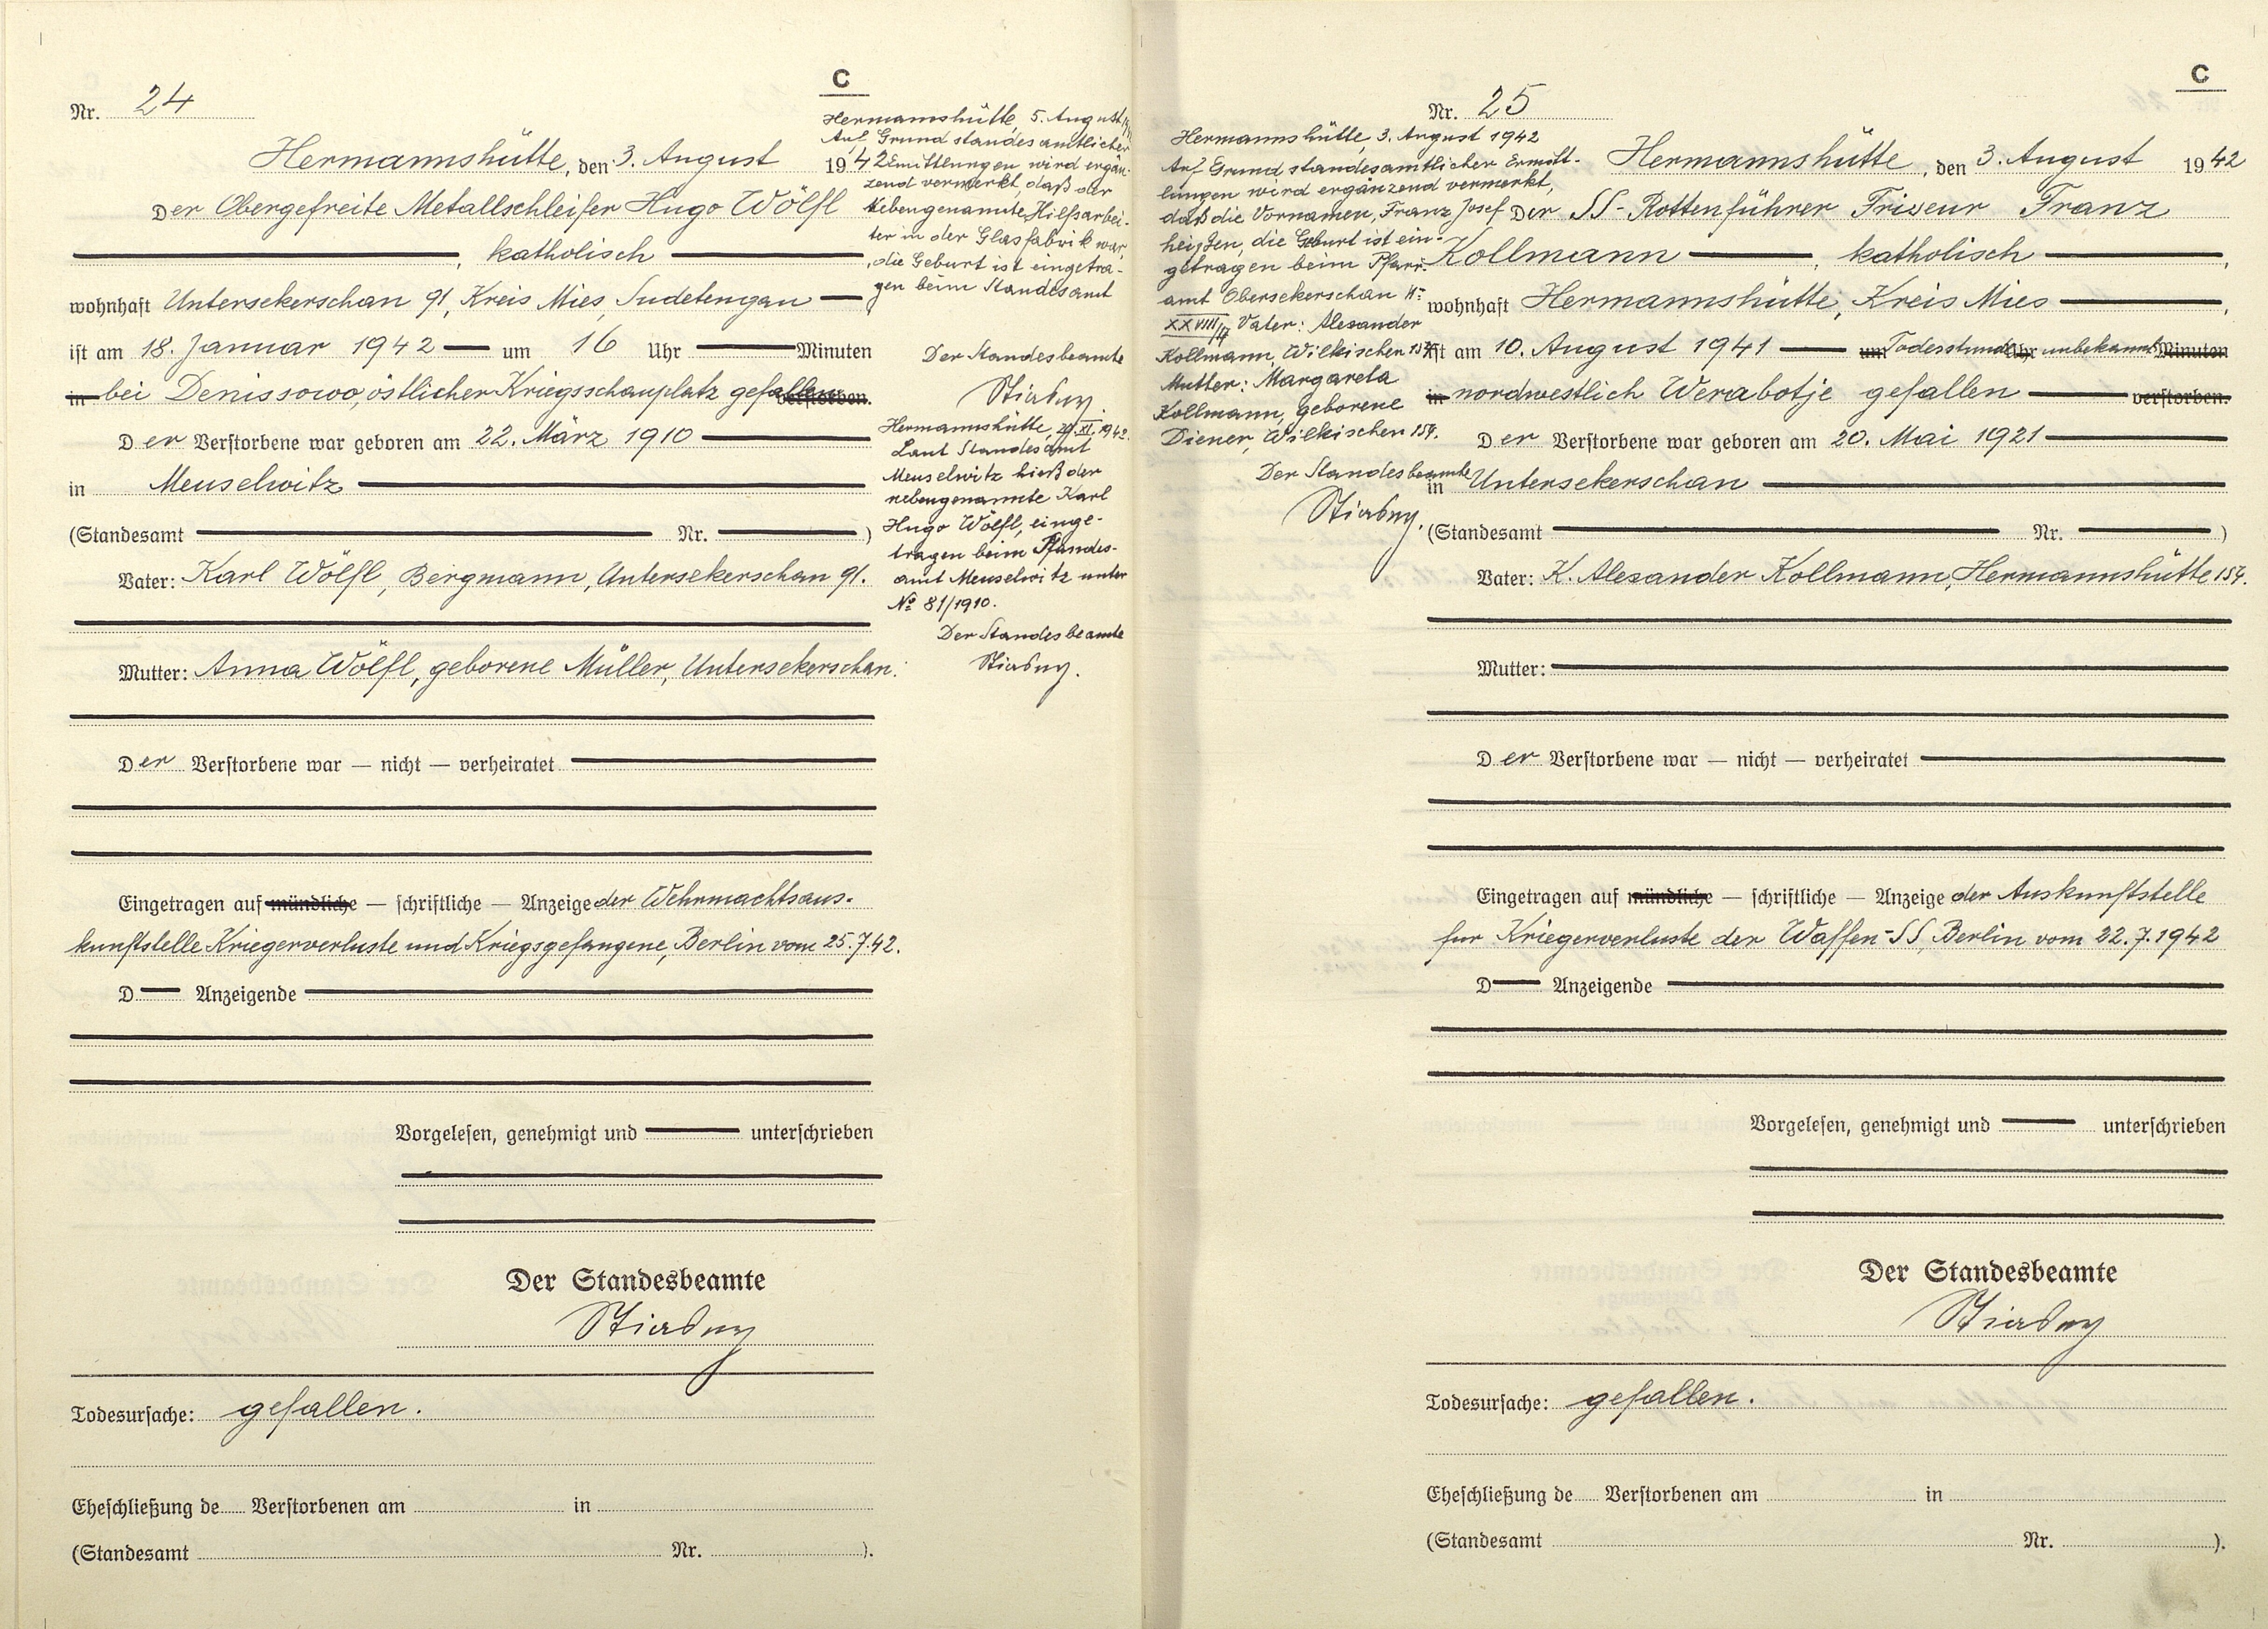 C
Nr. 24
Hermannshütte, den 3. August 1942
Der Obergefreite Metallschleifer Hugo Wölfl
, katholisch
wohnhaft Untersekerschan 91, Kreis Mies, Sudetengau
ist am 18. Januar 1942 um 16 Uhr Minuten
in bei Denissowo, östlicher Kriegsschauplatz gefallen verstorben.
Der Verstorbene war geboren am 22. März 1910
in Meuselwitz
(Standesamt Nr. )
Vater: Karl Wölfl, Bergmann, Untersekerschan 91.
Mutter: Anna Wölfl, geborene Müller, Untersekerschan.
Der Verstorbene war — nicht — verheiratet
Eingetragen auf mündliche — schriftliche — Anzeige der Wehrmachtsaus-
kunftstelle Kriegerverluste und Kriegsgefangene, Berlin vom 25.7.42.
D Anzeigende
Vorgelesen, genehmigt und unterschrieben
Der Standesbeamte
Stiasny
Todesursache: gefallen.
Eheschließung de Verstorbenen am in
(Standesamt Nr. ).
Hermannshütte, 5. August
Auf Grund standesamtlicher
Ermittlungen wird ergän-
zend vermerkt, daß der
Nebengenannte Hilfsarbei-
ter in der Glasfabrik war,
die Geburt ist eingetra-
gen beim Standesamt
Der Standesbeamte
Stiasny.
Hermannshütte, XI. 1942.
Laut Standesamt
Meuselwitz hieß der
nebengenannte Karl
Hugo Wölfl, einge-
tragen beim Standes-
amt Meuselwitz unter
No 81/1910.
Der Standesbeamte
Stiasny.
C
Nr. 25
Hermannshütte, den 3. August 1942
Der SS-Rottenführer Friseur Franz
Kollmann, katholisch,
wohnhaft Hermannshütte, Kreis Mies,
ist am 10. August 1941 um Todesstunde Uhr unbekannt Minuten
in nordwestlich Werabotje gefallen verstorben.
Der Verstorbene war geboren am 20. Mai 1921
in Untersekerschan
(Standesamt Nr. )
Vater: K. Alexander Kollmann, Hermannshütte 154.
Mutter:
Der Verstorbene war — nicht — verheiratet
Eingetragen auf mündliche — schriftliche — Anzeige der Auskunftstelle
für Kriegerverluste der Waffen-SS, Berlin vom 22.7.1942
D Anzeigende
Vorgelesen, genehmigt und unterschrieben
Der Standesbeamte
Stiasny
Todesursache: gefallen.
Eheschließung de Verstorbenen am in
(Standesamt Nr. ).
Hermannshütte, 3. August 1942
Auf Grund standesamtlicher Ermitt-
lungen wird ergänzend vermerkt,
daß die Vornamen, Franz Josef
heißen, die Geburt ist ein-
getragen beim Pfarr-
amt Obersekerschan
XXVIII/17 Vater: Alexander
Kollmann, Wilkischen 154
Mutter: Margareta
Kollmann, geborene
Diener, Wilkischen 154.
Der Standesbeamte
Stiasny.